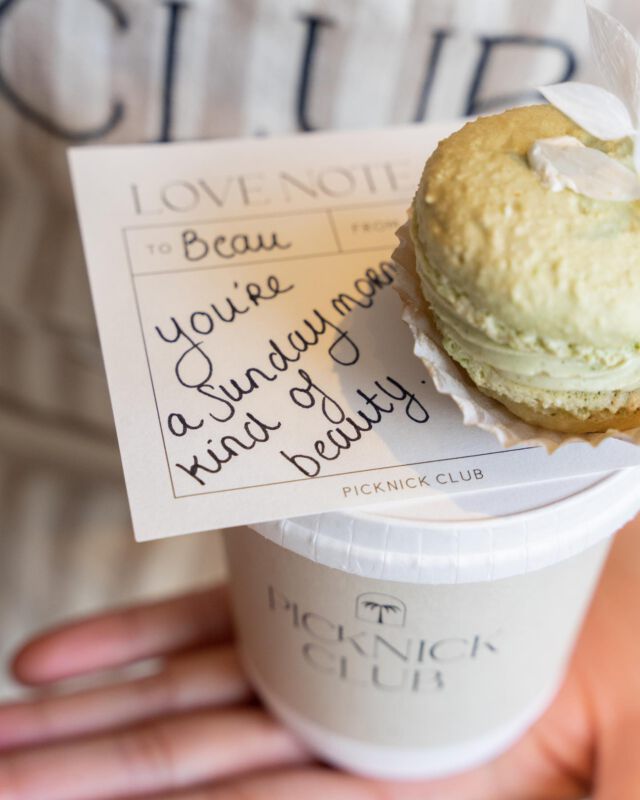 CLUB
LOVE NOTE
TO Beau FROM
you're
a sunday morn
kind of
beauty.
PICKNICK CLUB
PICKNICK
CLUB